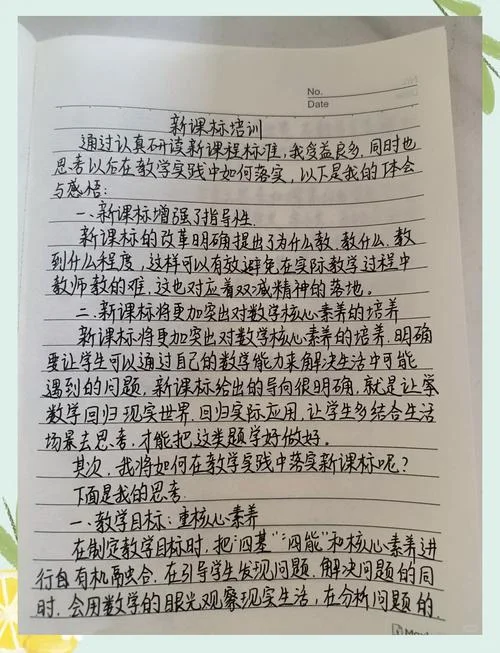 No.
Date
新课标培训
通过认真研读新课程标准,我受益良多,同时也
思考以后在教学实践中如何落实,以下是我的体会
与感悟:
一、新课标增强了指导性.
新课标的改革明确提出了为什么教、教什么、教
到什么程度,这样可以有效避免在实际教学过程中
教师教的难,这也对应着双减精神的落地。
二.新课标将更加突出对数学核心素养的培养
新课标将更加突出对数学核心素养的培养.明确
要让学生可以通过自己的数学能力来解决生活中可能
遇到的问题,新课标给出的导向很明确,就是让
数学回归现实世界.回归实际应用.让学生多结合生活
场景去思考,才能把这类题学好做好。
其次,我将如何在教学实践中落实新课标呢?
下面是我的思考.
一、教学目标:重核心素养
在制定教学目标时,把“四基”“四能”和核心素养进
行自有机融合.在引导学生发现问题.解决问题的同
时.会用数学的眼光观察现实生活,在分析问题的.